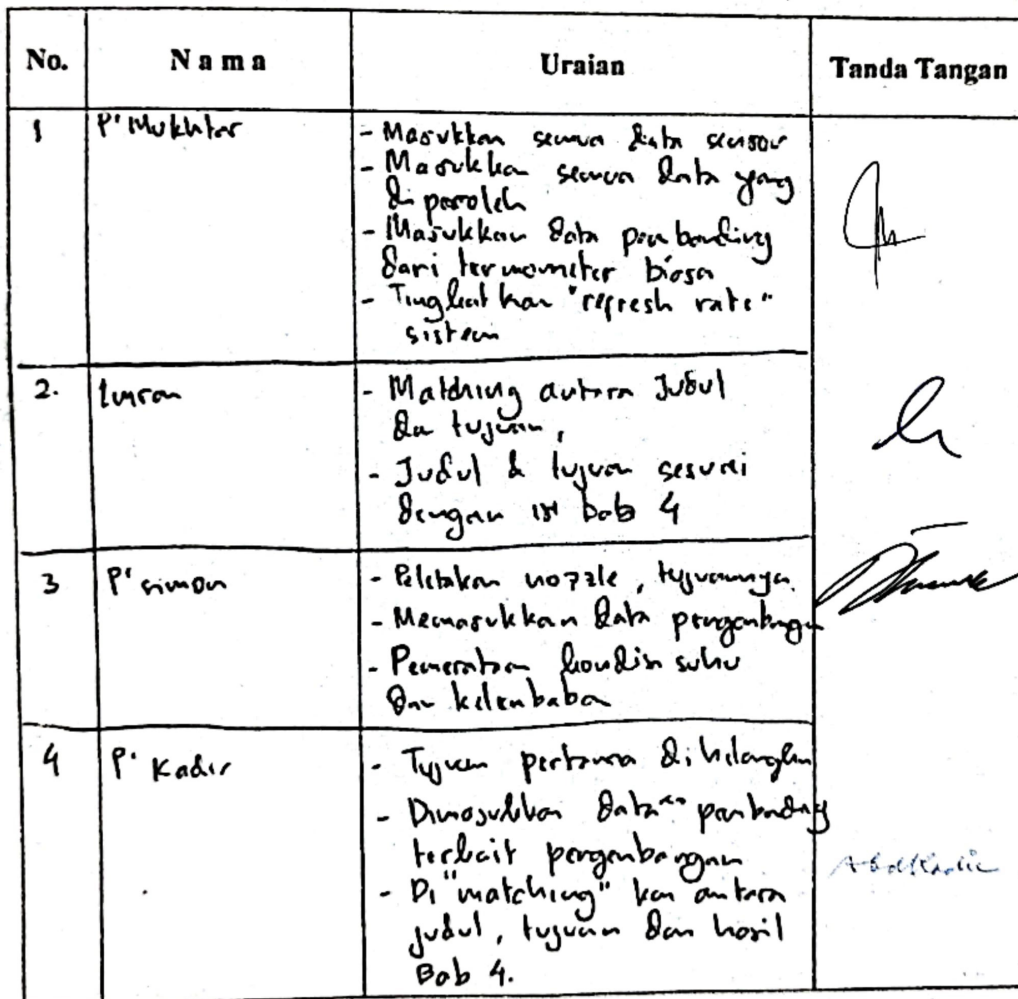 No. Nama Uraian Tanda Tangan
1 P' Mukhtar - Masukkan semua data sensor
- Masukkan semua data yang
diperoleh
- Masukkan data pembanding
dari termometer biasa
- Tingkatkan "refresh rate"
sistem
2. Imron - Matching antara Judul
da tujuan,
- Judul & tujuan sesuai
dengan isi bab 4
3 P' simon - Peletakan nozzle, tujuannya.
- Memasukkan data pengembangan
- Pemerataan kondisi suhu
dan kelembaba
4 P' Kadir - Tujuan pertama dihilangkan
- Dimasukkan data" pembanding
terkait pengembangan
- Di "matching" kan antara
judul, tujuan dan hasil
Bab 4.
AbdKadir